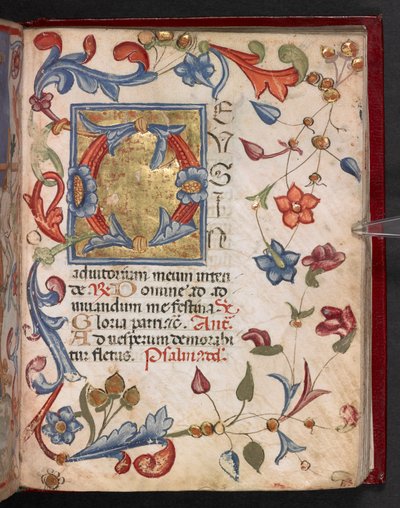 D
EUS IN
adiutorium meum inten
de R Domine ad ad
iuuandum me festina R
Gloria patri &c. Ant.
Ad uesperum demorabi
tur fletus. Psalm